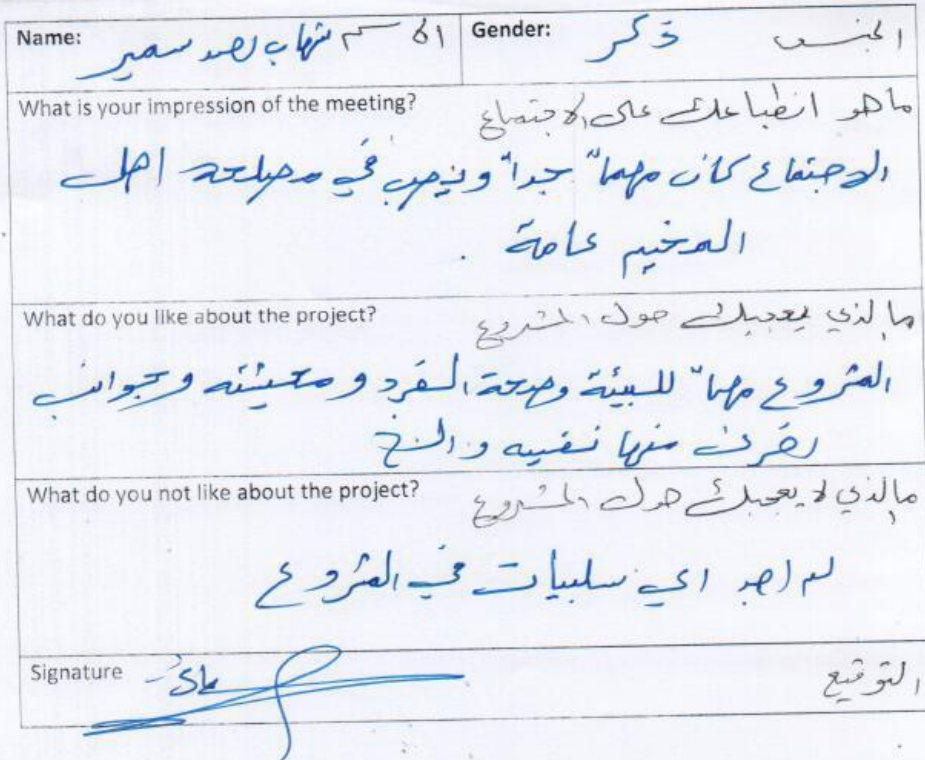 Name: الاسم شهاب احمد سمير
Gender: ذكر الجنس
What is your impression of the meeting? ما هو انطباعك على الاجتماع
الاجتماع كان مهماً جداً ويصب في مصلحة اهل
المخيم عامة .
What do you like about the project? ما لذي يعجبك حول المشروع
المشروع مهماً للبيئة وصحة الفرد ومعيشته وجوانب
اخرى منها نفسيه والخ
What do you not like about the project? مالذي لا يعجبك حول المشروع
لم اجد اي سلبيات في المشروع
Signature التوقيع